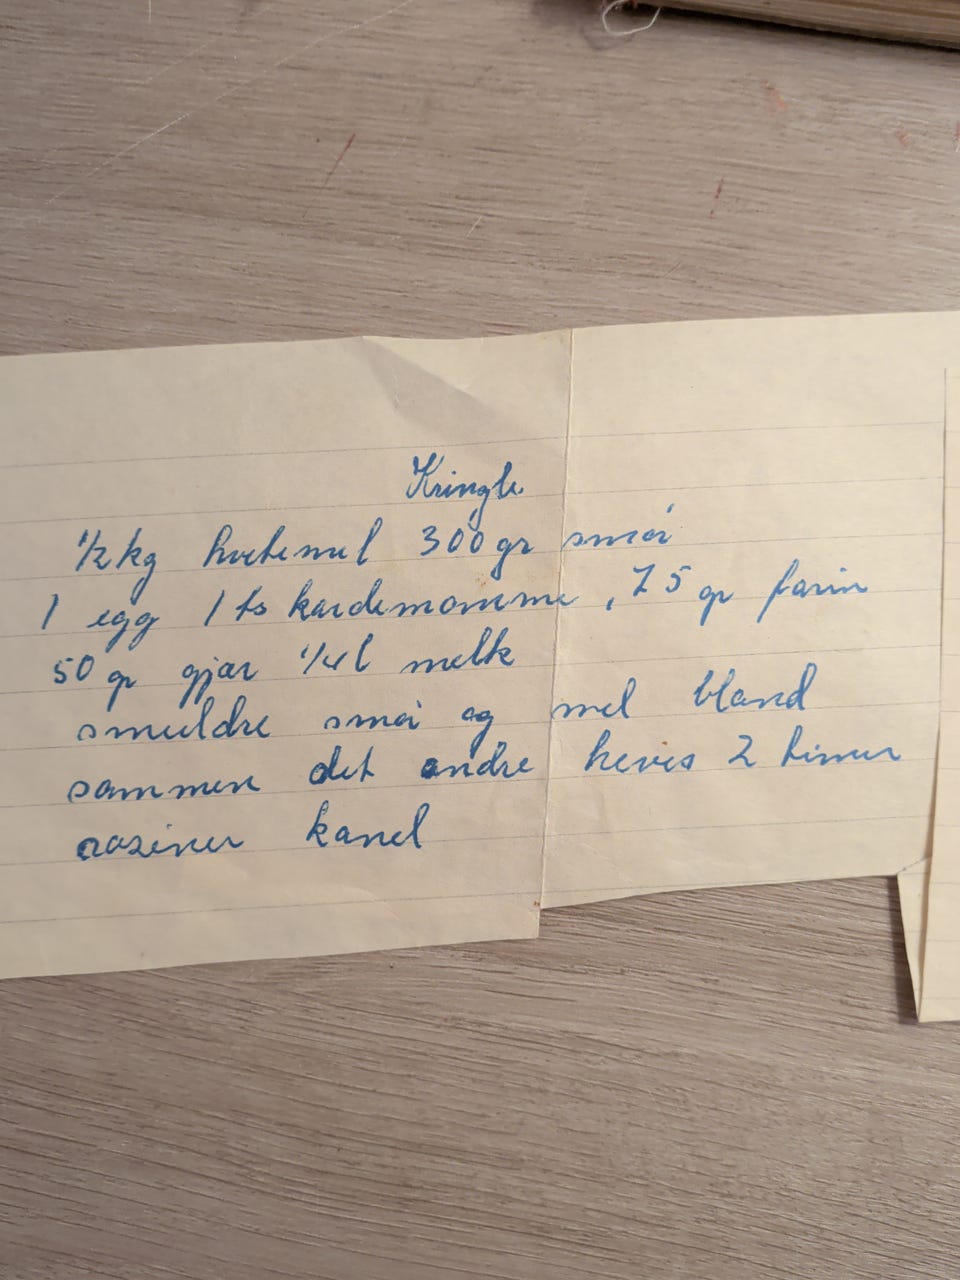 Kringle
1/2 kg hvetemel 300 gr smør
1 egg 1 ts kardemomme, 75 gr farin
50 gr gjær 1/4 l melk
smuldre smør og mel bland
sammen det andre heves 2 timer
rosiner kanel